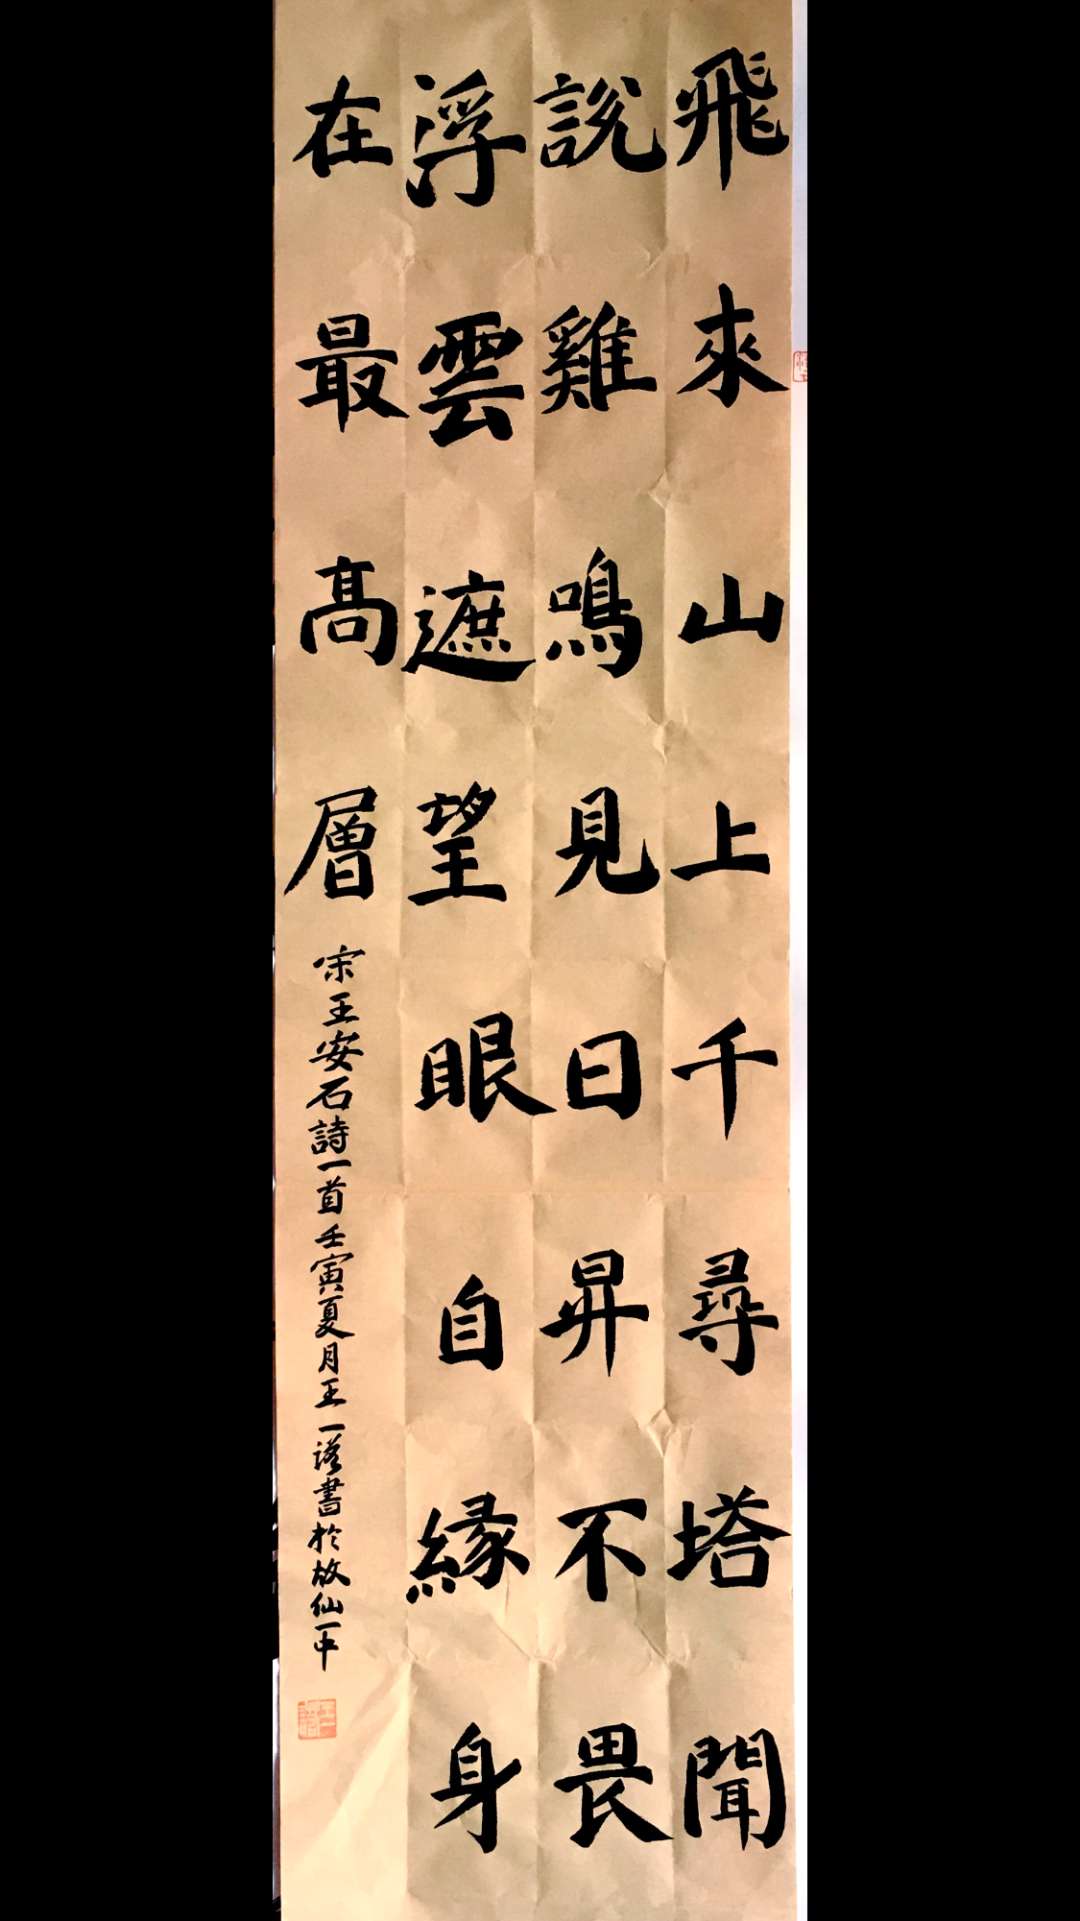 飛來山上千尋塔聞
說雞鳴見日昇不畏
浮雲遮望眼自緣身
在最高層
宋王安石詩一首壬寅夏月王一諾書於故仙一中